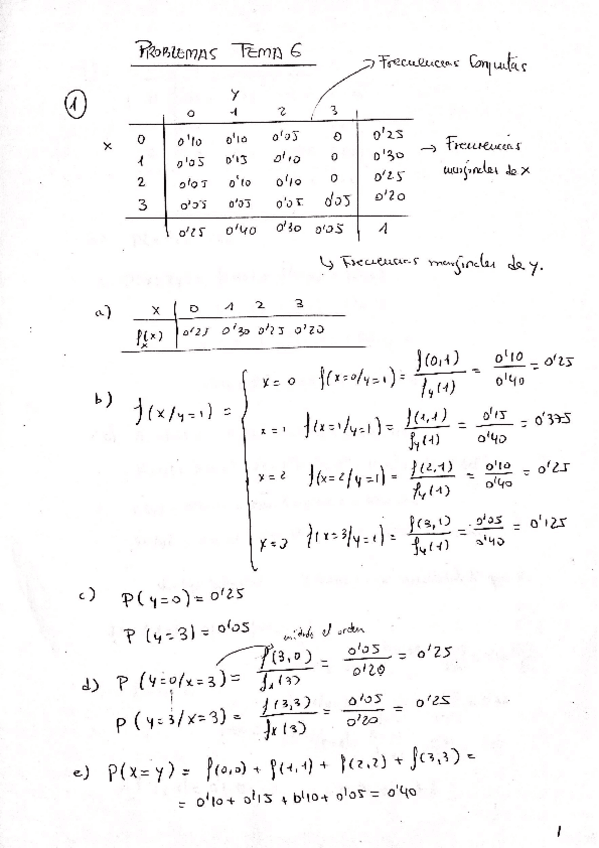 PROBLEMAS TEMA 6
→ Frecuencias Conjuntas
1
y
0 1 2 3
x 0 0'10 0'10 0'05 0 0'25
1 0'05 0'15 0'10 0 0'30
2 0'05 0'10 0'10 0 0'25
3 0'05 0'05 0'05 0'05 0'20
0'25 0'40 0'30 0'05 1
→ Frecuencias marginales de x
↳ Frecuencias marginales de y.
a) x 0 1 2 3
fx(x) 0'25 0'30 0'25 0'20
b) f(x/y=1) =
x=0 f(x=0/y=1) = f(0,1)/fy(1) = 0'10/0'40 = 0'25
x=1 f(x=1/y=1) = f(1,1)/fy(1) = 0'15/0'40 = 0'375
x=2 f(x=2/y=1) = f(2,1)/fy(1) = 0'10/0'40 = 0'25
x=3 f(x=3/y=1) = f(3,1)/fy(1) = 0'05/0'40 = 0'125
c) P(y=0) = 0'25
P(y=3) = 0'05
el orden
d) P(y=0/x=3) = f(3,0)/fx(3) = 0'05/0'20 = 0'25
P(y=3/x=3) = f(3,3)/fx(3) = 0'05/0'20 = 0'25
e) P(x=y) = f(0,0) + f(1,1) + f(2,2) + f(3,3) =
= 0'10 + 0'15 + 0'10 + 0'05 = 0'40
1